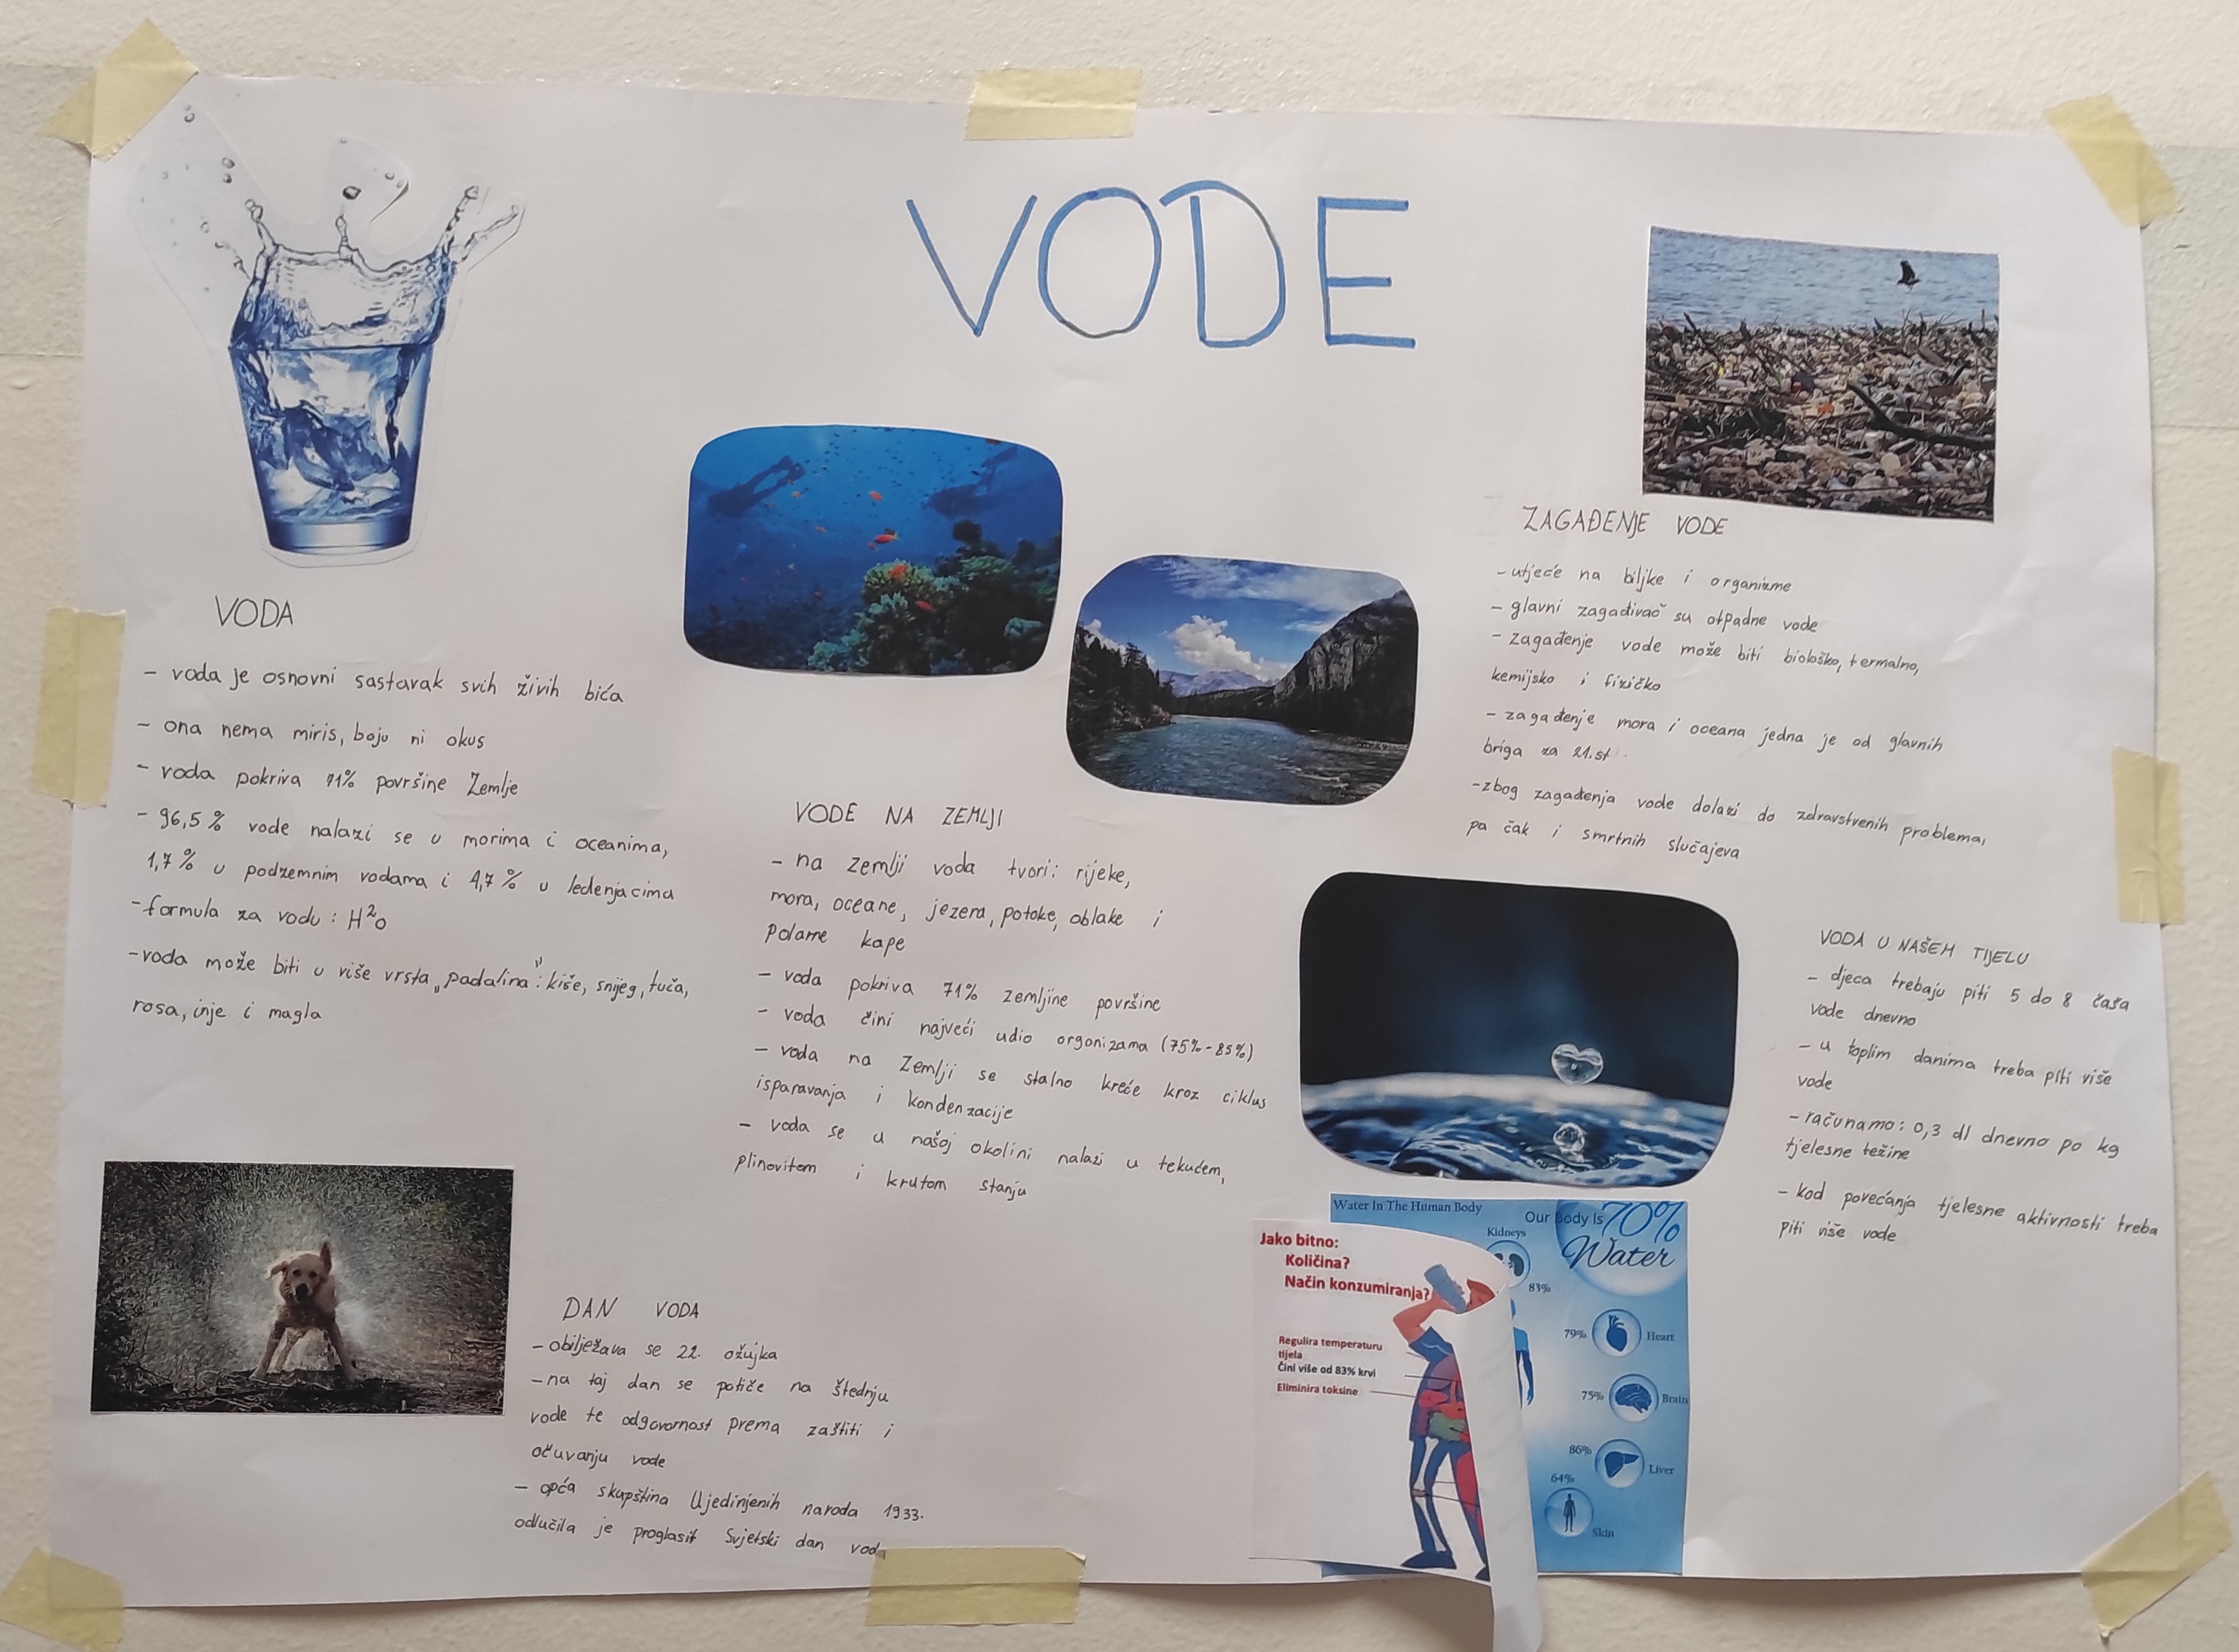 VODE
VODA
- voda je osnovni sastavak svih živih bića
- ona nema miris, boju ni okus
- voda pokriva 71% površine Zemlje
- 96,5 % vode nalazi se u morima i oceanima,
1,7 % u podzemnim vodama i 1,7 % u ledenjacima
- formula za vodu : H²O
- voda može biti u više vrsta „padalina": kiše, snijeg, tuča,
rosa, inje i magla
DAN VODA
- obilježava se 22. ožujka
- na taj dan se potiče na štednju
vode te odgovornost prema zaštiti i
očuvanju vode
- opća skupština Ujedinjenih naroda 1933.
odlučila je proglasit Svjetski dan
VODE NA ZEMLJI
- na zemlji voda tvori: rijeke,
mora, oceane, jezera, potoke, oblake i
Polarne kape
- voda pokriva 71% zemljine površine
- voda čini najveći udio organizama (75%-85%)
- voda na Zemlji se stalno kreće kroz ciklus
isparavanja i kondenzacije
- voda se u našoj okolini nalazi u tekućem,
plinovitom i krutom stanju
ZAGAĐENJE VODE
- utječe na biljke i organizme
- glavni zagađivač su otpadne vode
- zagađenje vode može biti biološko, termalno,
kemijsko i fizičko
- zagađenje mora i oceana jedna je od glavnih
briga za 21.st
- zbog zagađenja vode dolazi do zdravstvenih problema,
pa čak i smrtnih slučajeva
VODA U NAŠEM TIJELU
- djeca trebaju piti 5 do 8 čaša
vode dnevno
- u toplim danima treba piti više
vode
- računamo: 0,3 dl dnevno po kg
tjelesne težine
- kod povećanja tjelesne aktivnosti treba
piti više vode
Water In The Human Body
Our Body Is 70%
Water
Kidneys
83%
79% Heart
75% Brain
86% Liver
64%
Skin
Jako bitno:
Količina?
Način konzumiranja?
Regulira temperaturu
tijela
Čini više od 83% krvi
Eliminira toksine